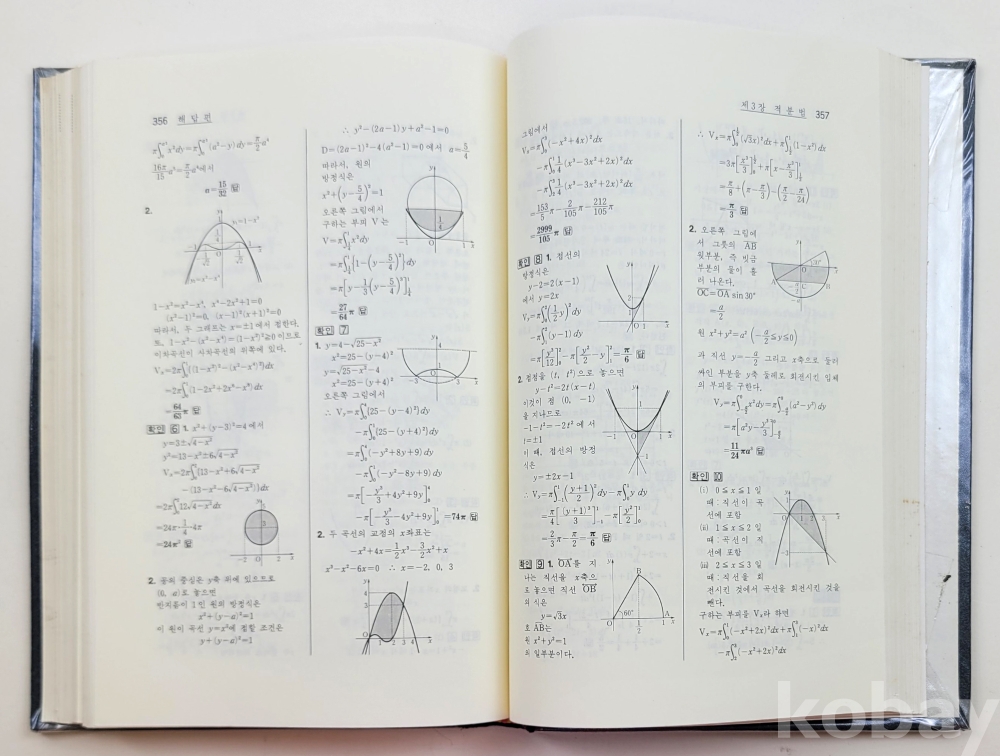 356 해답편
π∫x²dy=π∫(a²-y)dy=π/2 a⁴
16π/15 a⁵=π/2 a⁴에서
a=15/32 답
2.
y₁=1-x²
y₂=x²-x⁴
1-x²=x²-x⁴, x⁴-2x²+1=0
(x²-1)²=0, (x-1)²(x+1)²=0
따라서, 두 그래프는 x=±1에서 접한다.
또, 1-x²-(x²-x⁴)=(1-x²)²≧0 이므로
이차곡선이 사차곡선의 위쪽에 있다.
=64/63 π 답
확인 6 1. x²+(y-3)²=4에서
y=3±√4-x²
y²=13-x²±6√4-x²
Vₓ=2π∫{13-x²+6√4-x²
-(13-x²-6√4-x²)}dx
=2π∫12√4-x² dx
=24π·1/4·4π
=24π² 답
2. 원의 중심은 y축 위에 있으므로
(0, a)로 놓으면
반지름이 1인 원의 방정식은
x²+(y-a)²=1
이 원이 곡선 y=x²에 접할 조건은
y+(y-a)²=1
∴ y²-(2a-1)y+a²-1=0
D=(2a-1)²-4(a²-1)=0에서 a=5/4
따라서, 원의
방정식은
x²+(y-5/4)²=1
오른쪽 그림에서
구하는 부피 V는
=27/64 π 답
확인 7
1. y=4-√25-x²
x²=25-(y-4)²
y=√25-x²-4
x²=25-(y+4)²
오른쪽 그림에서
∴ Vᵧ=π∫{25-(y-4)²}dy
-π∫{25-(y+4)²}dy
=π∫(-y²+8y+9)dy
-π∫(-y²-8y+9)dy
=π[-y³/3+4y²+9y]
-π[-y³/3-4y²+9y]=74π 답
2. 두 곡선의 교점의 x좌표는
-x²+4x=1/2x³-3/2x²+x
x³-x²-6x=0 ∴ x=-2, 0, 3
제3장 적분법 357
그림에서
Vₓ=π∫(-x²+4x)²dx
-π∫1/4(x³-3x²+2x)²dx
-π∫1/4(x³-3x²+2x)²dx
=153/5 π-2/105 π-212/105 π
=2999/105 π 답
확인 8 1. 접선의
방정식은
y-2=2(x-1)
에서 y=2x
Vᵧ=π∫(1/2 y)²dy
-π∫(y-1)dy
=π[y³/12]-π[y²/2-y]=π/6 답
2. 접점을 (t, t²)으로 놓으면
y-t²=2t(x-t)
이것이 점 (0, -1)
을 지나므로
-1-t²=-2t²에서
t=±1
이 때, 접선의 방정
식은
y=±2x-1
∴ Vᵧ=π∫(y+1/2)²dy-π∫y dy
=π/4[(y+1)³/3]-π[y²/2]
=2/3 π-π/2=π/6 답
확인 9 1. OA를 지
나는 직선을 x축으
로 놓으면 직선 OB
의 식은
y=√3x
호 AB는
원 x²+y²=1
의 일부분이다.
∴ Vₓ=π∫(√3x)²dx+π∫(1-x²)dx
=3π[x³/3]+π[x-x³/3]
=π/8+(π-π/3)-(π/2-π/24)
=π/3 답
2. 오른쪽 그림에
서 그릇의 AB
윗부분, 즉 빗금
부분의 물이 흘
러 나온다.
OC=OA sin30°
=a/2
원 x²+y²=a² (-a/2≦y≦0)
과 직선 y=-a/2 그리고 x축으로 둘러
싸인 부분을 y축 둘레로 회전시킨 입체
의 부피를 구한다.
Vᵧ=π∫x²dy=π∫(a²-y²)dy
=π[a²y-y³/3]
=11/24 πa³ 답
확인 10
(i) 0≦x≦1일
때:직선이 곡
선에 포함
(ii) 1≦x≦2일
때:곡선이 직
선에 포함
(iii) 2≦x≦3일
때:직선을 회
전시킨 것에서 곡선을 회전시킨 것을
뺀다.
구하는 부피를 Vₓ라 하면
Vₓ=π∫(-x²+2x)²dx+π∫(-x)²dx
-π∫(-x²+2x)²dx
kobay